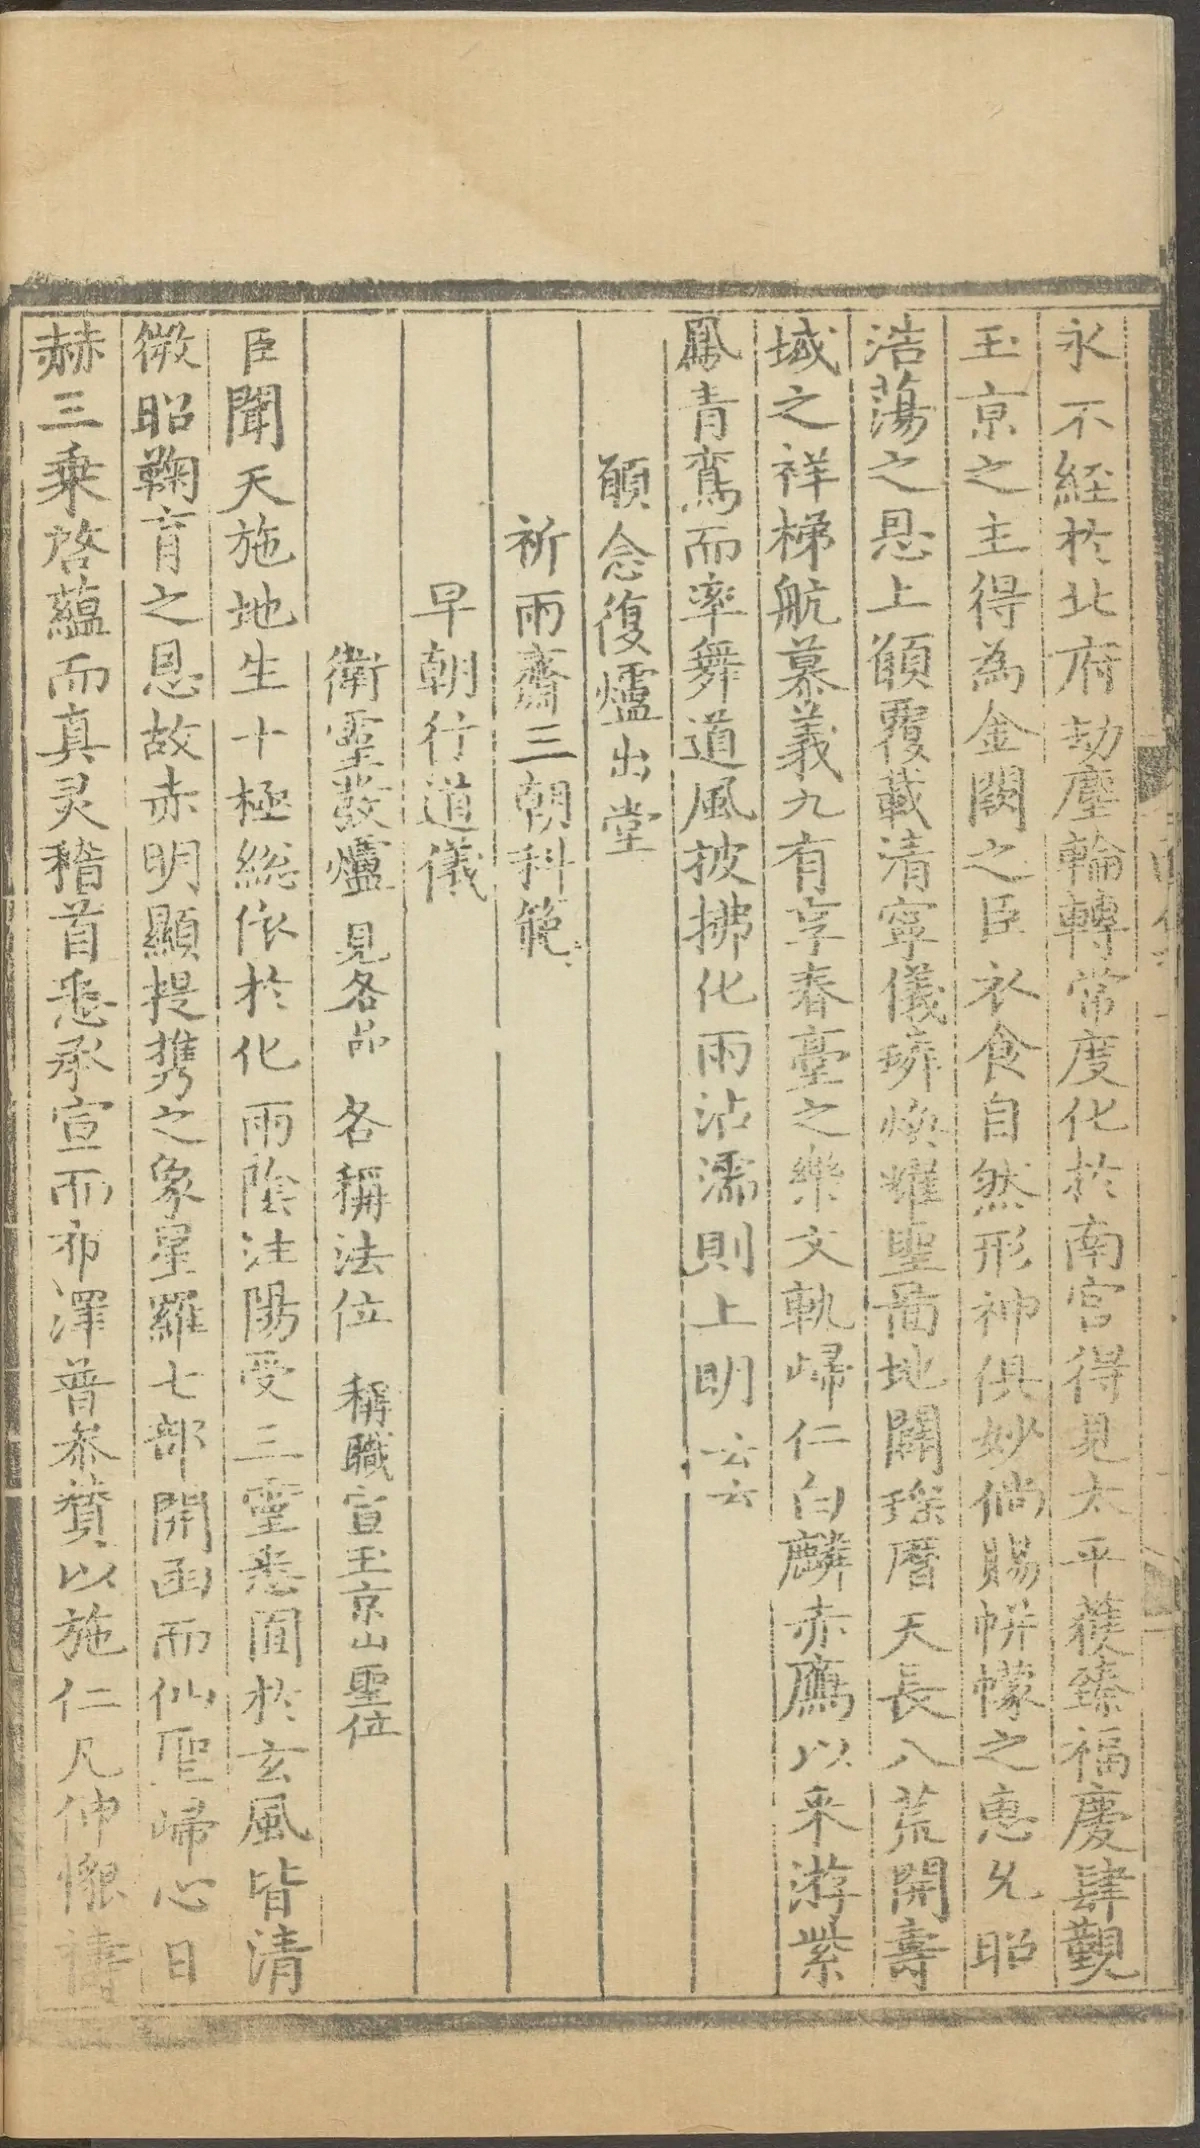 永不經於北府劫塵輪轉常度化於南宮得見太平蒦臻福慶肆覲
玉京之主得為金闕之臣衣食自然形神俱妙倘賜帡幪之惠允昭
浩蕩之恩上願覆載清寧儀璘煥耀聖啚地闢琛曆天長八荒開壽
域之祥梯航慕義九有享春臺之樂文軌歸仁白麟赤鴈以来游紫
鳳青鸞而率舞道風披拂化雨沾濡則上明云云
願念復爐出堂
祈雨齋三朝科範
早朝行道儀
衛靈發爐見各品 各稱法位 稱職宣玉京山聖位
臣聞天施地生十極総依於化雨陰注陽受三靈悉囿於玄風皆清
微昭鞠育之恩故赤明顯提携之象星羅七部開函而仙聖歸心日
赫三乗啓蘊而真灵稽首悉承宣而布澤普叅賛以施仁凡伸懇禱